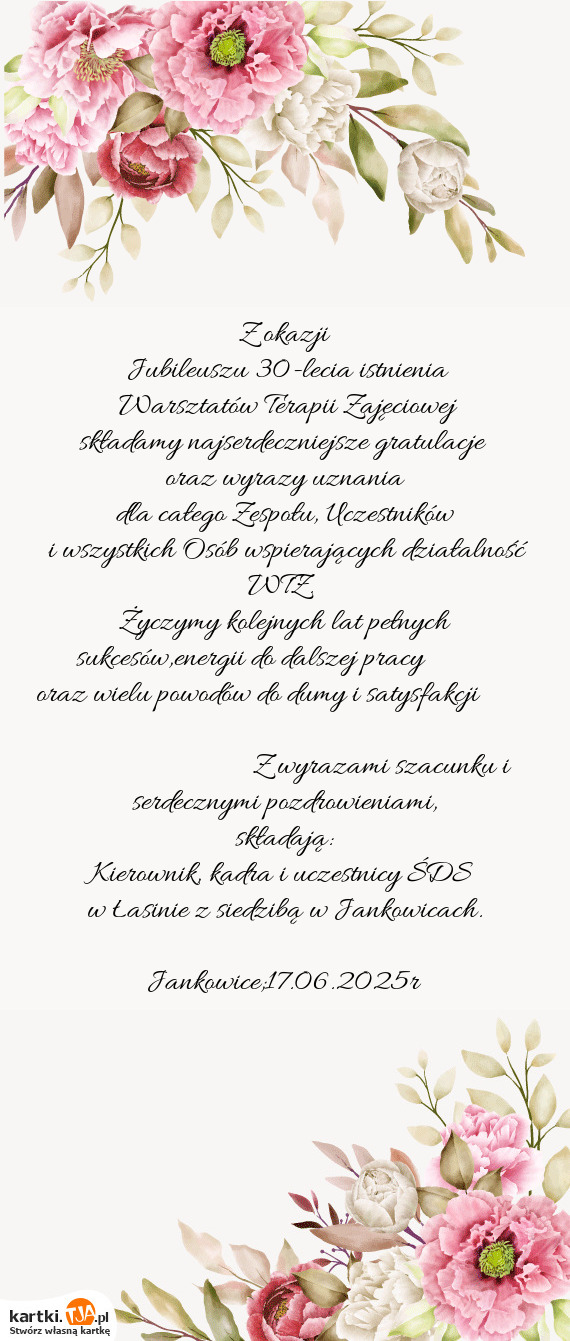 Z okazji
Jubileuszu 30-lecia istnienia
Warsztatów Terapii Zajęciowej
składamy najserdeczniejsze gratulacje
oraz wyrazy uznania
dla całego Zespołu, Uczestników
i wszystkich Osób wspierających działalność
WTZ
Życzymy kolejnych lat pełnych
sukcesów,energii do dalszej pracy
oraz wielu powodów do dumy i satysfakcji
Z wyrazami szacunku i
serdecznymi pozdrowieniami,
składają:
Kierownik, kadra i uczestnicy ŚDS
w Łasinie z siedzibą w Jankowicach.
Jankowice;17.06.2025r
kartki.TJA.pl
Stwórz własną kartkę